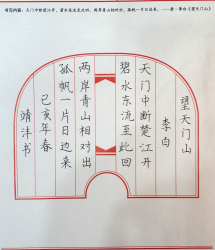 书写内容：天门中断楚江开，碧水东流至此回。两岸青山相对出，孤帆一片日边来。——唐·李白《望天门山》
望天门山
李白
天门中断楚江开
碧水东流至此回
两岸青山相对出
孤帆一片日边来
己亥年春
靖沣书